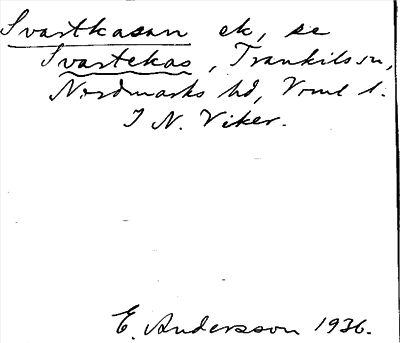 Svartkasan ek, se
Svartekas, Trankils sn,
Nordmarks hd, Vrml l.
I N. Viker.
E. Andersson 1936.